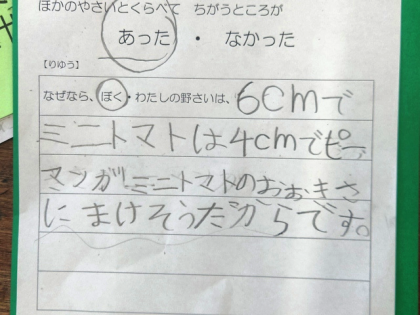 ほかのやさいとくらべて ちがうところが
あった ・ なかった
【りゆう】
なぜなら、ぼく・わたしの野さいは、6cmで
ミニトマトは4cmでピー
マンがミニトマトのおおきさ
にまけそうだからです。